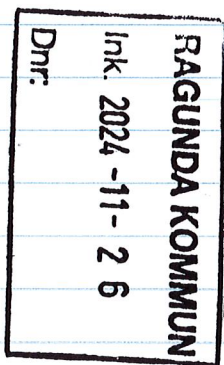 RAGUNDA KOMMUN
Ink. 2024 -11- 2 6
Dnr: